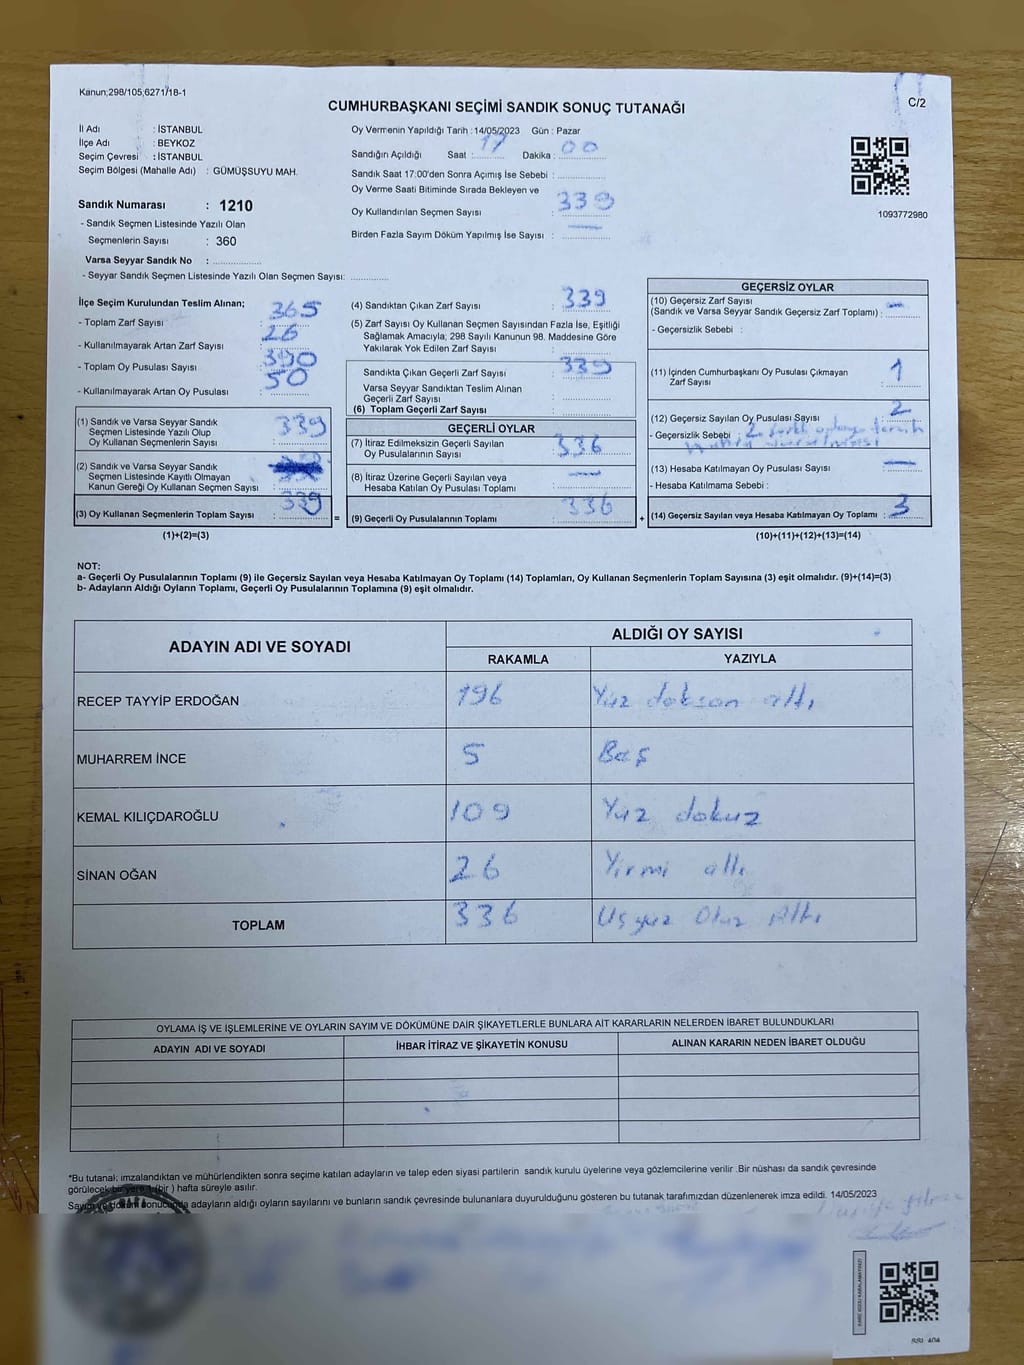 Kanun;298/105;6271/18-1
C/2
CUMHURBAŞKANI SEÇİMİ SANDIK SONUÇ TUTANAĞI
İl Adı : İSTANBUL
İlçe Adı : BEYKOZ
Seçim Çevresi : İSTANBUL
Seçim Bölgesi (Mahalle Adı) : GÜMÜŞSUYU MAH.
Sandık Numarası : 1210
- Sandık Seçmen Listesinde Yazılı Olan
Seçmenlerin Sayısı : 360
Varsa Seyyar Sandık No :
- Seyyar Sandık Seçmen Listesinde Yazılı Olan Seçmen Sayısı:
Oy Vermenin Yapıldığı Tarih : 14/05/2023 Gün : Pazar
Sandığın Açıldığı Saat : 17 Dakika : 00
Sandık Saat 17:00'den Sonra Açımış İse Sebebi :
Oy Verme Saati Bitiminde Sırada Bekleyen ve
Oy Kullandırılan Seçmen Sayısı : 339
Birden Fazla Sayım Döküm Yapılmış İse Sayısı : —
1093772980
İlçe Seçim Kurulundan Teslim Alınan;
- Toplam Zarf Sayısı : 365
- Kullanılmayarak Artan Zarf Sayısı : 26
- Toplam Oy Pusulası Sayısı : 390
- Kullanılmayarak Artan Oy Pusulası : 50
(1) Sandık ve Varsa Seyyar Sandık
Seçmen Listesinde Yazılı Olup
Oy Kullanan Seçmenlerin Sayısı : 339
(2) Sandık ve Varsa Seyyar Sandık
Seçmen Listesinde Kayıtlı Olmayan
Kanun Gereği Oy Kullanan Seçmen Sayısı :
(3) Oy Kullanan Seçmenlerin Toplam Sayısı : 339
(1)+(2)=(3)
(4) Sandıktan Çıkan Zarf Sayısı : 339
(5) Zarf Sayısı Oy Kullanan Seçmen Sayısından Fazla İse, Eşitliği
Sağlamak Amacıyla; 298 Sayılı Kanunun 98. Maddesine Göre
Yakılarak Yok Edilen Zarf Sayısı :
Sandıkta Çıkan Geçerli Zarf Sayısı : 339
Varsa Seyyar Sandıktan Teslim Alınan
Geçerli Zarf Sayısı :
(6) Toplam Geçerli Zarf Sayısı :
GEÇERLİ OYLAR
(7) İtiraz Edilmeksizin Geçerli Sayılan
Oy Pusulalarının Sayısı : 336
(8) İtiraz Üzerine Geçerli Sayılan veya
Hesaba Katılan Oy Pusulası Toplamı : —
= (9) Geçerli Oy Pusulalarının Toplamı : 336
GEÇERSİZ OYLAR
(10) Geçersiz Zarf Sayısı
(Sandık ve Varsa Seyyar Sandık Geçersiz Zarf Toplamı) : —
- Geçersizlik Sebebi :
(11) İçinden Cumhurbaşkanı Oy Pusulası Çıkmayan
Zarf Sayısı : 1
(12) Geçersiz Sayılan Oy Pusulası Sayısı : 2
- Geçersizlik Sebebi : 2 farklı
(13) Hesaba Katılmayan Oy Pusulası Sayısı : —
- Hesaba Katılmama Sebebi :
+ (14) Geçersiz Sayılan veya Hesaba Katılmayan Oy Toplamı : 3
(10)+(11)+(12)+(13)=(14)
NOT:
a- Geçerli Oy Pusulalarının Toplamı (9) ile Geçersiz Sayılan veya Hesaba Katılmayan Oy Toplamı (14) Toplamları, Oy Kullanan Seçmenlerin Toplam Sayısına (3) eşit olmalıdır. (9)+(14)=(3)
b- Adayların Aldığı Oyların Toplamı, Geçerli Oy Pusulalarının Toplamına (9) eşit olmalıdır.
ADAYIN ADI VE SOYADI ALDIĞI OY SAYISI
RAKAMLA YAZIYLA
RECEP TAYYİP ERDOĞAN 196 Yüz doksan altı
MUHARREM İNCE 5 Beş
KEMAL KILIÇDAROĞLU 109 Yüz dokuz
SİNAN OĞAN 26 Yirmi altı
TOPLAM 336 Üçyüz Otuz Altı
OYLAMA İŞ VE İŞLEMLERİNE VE OYLARIN SAYIM VE DÖKÜMÜNE DAİR ŞİKAYETLERLE BUNLARA AİT KARARLARIN NELERDEN İBARET BULUNDUKLARI
ADAYIN ADI VE SOYADI İHBAR İTİRAZ VE ŞİKAYETİN KONUSU ALINAN KARARIN NEDEN İBARET OLDUĞU
*Bu tutanak; imzalandıktan ve mühürlendikten sonra seçime katılan adayların ve talep eden siyasi partilerin sandık kurulu üyelerine veya gözlemcilerine verilir .Bir nüshası da sandık çevresinde
görülecek bir yere 1 (bir ) hafta süreyle asılır.
Sayım ve döküm sonucunda adayların aldığı oyların sayılarını ve bunların sandık çevresinde bulunanlara duyurulduğunu gösteren bu tutanak tarafımızdan düzenlenerek imza edildi. 14/05/2023